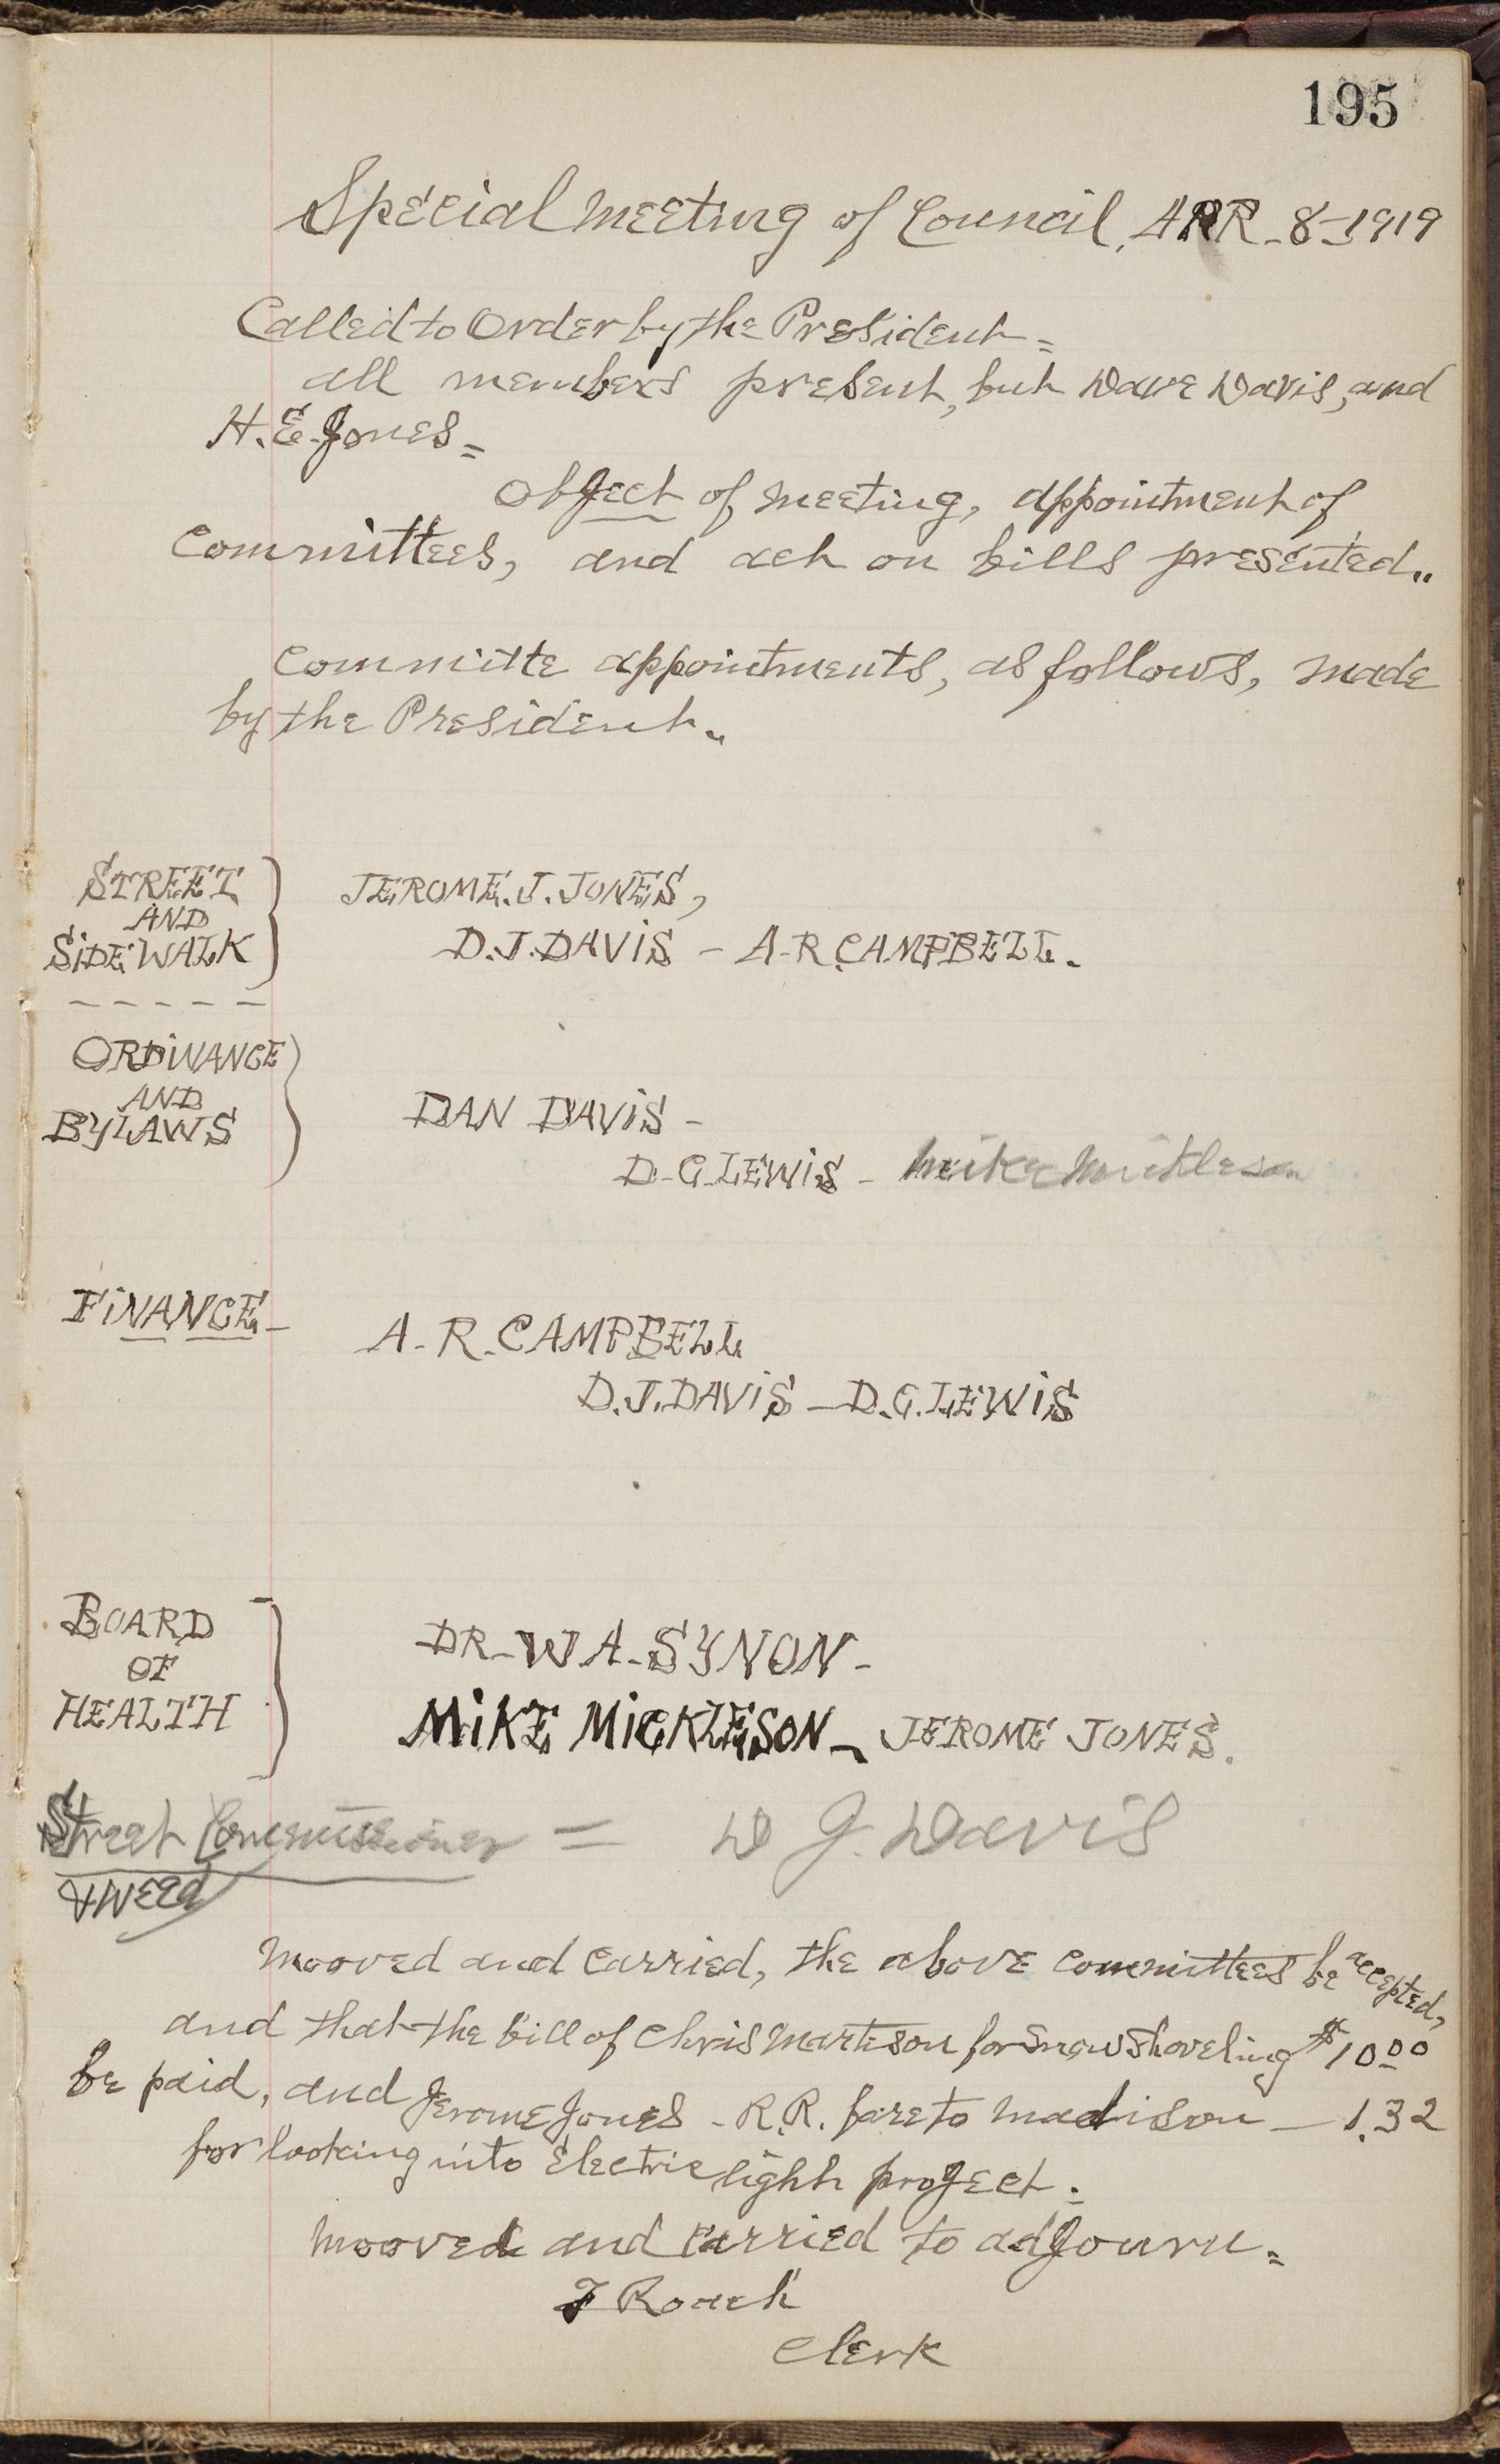 195
Special Meeting of Council, APR - 8 - 1919
Called to Order by the President =
all members present, but Dave Davis, and
H. E. Jones =
Object of Meeting, appointment of
Committees, and act on bills presented„
Committe appointments, as follows, made
by the President„
STREET
AND
SIDEWALK
JEROME. J. JONES,
D. J. DAVIS - A. R. CAMPBELL.
- - - - -
ORDINANCE
AND
BYLAWS
DAN DAVIS -
D. G. LEWIS - Mike Mickleson
FINANCE -
A. R. CAMPBELL
D. J. DAVIS - D. G. LEWIS
BOARD
OF
HEALTH
DR - W A - SYNON -
MIKE MICKLESON - JEROME JONES.
Street Commissioner = D J. Davis
& Weed
Mooved and Carried, the above Committees be accepted,
and that the bill of Chris Marteson for Snow Shoveling $10.00
be paid, and Jerome Jones - R.R. fare to Madison - 1.32
for looking into Electric light project.
Mooved and Carried to adjourn =
F Roach
Clerk